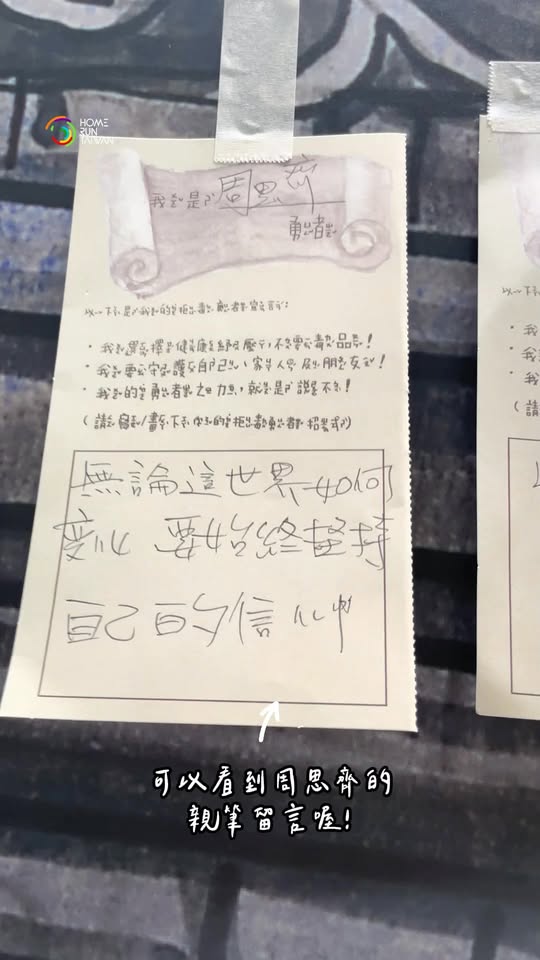 HOME
RUN
TAIWAN
我是周思齊
勇者
以下是我的拒毒勇者宣言:
• 我選擇健康紓壓,不要毒品!
• 我要守護自己、家人與朋友!
• 我的勇者之力,就是說不!
(請寫/畫下你的拒毒勇者招式)
無論這世界如何
變化 要始終堅持
自己的信仰
• 我
• 我
• 我
(請
可以看到周思齊的
親筆留言喔!